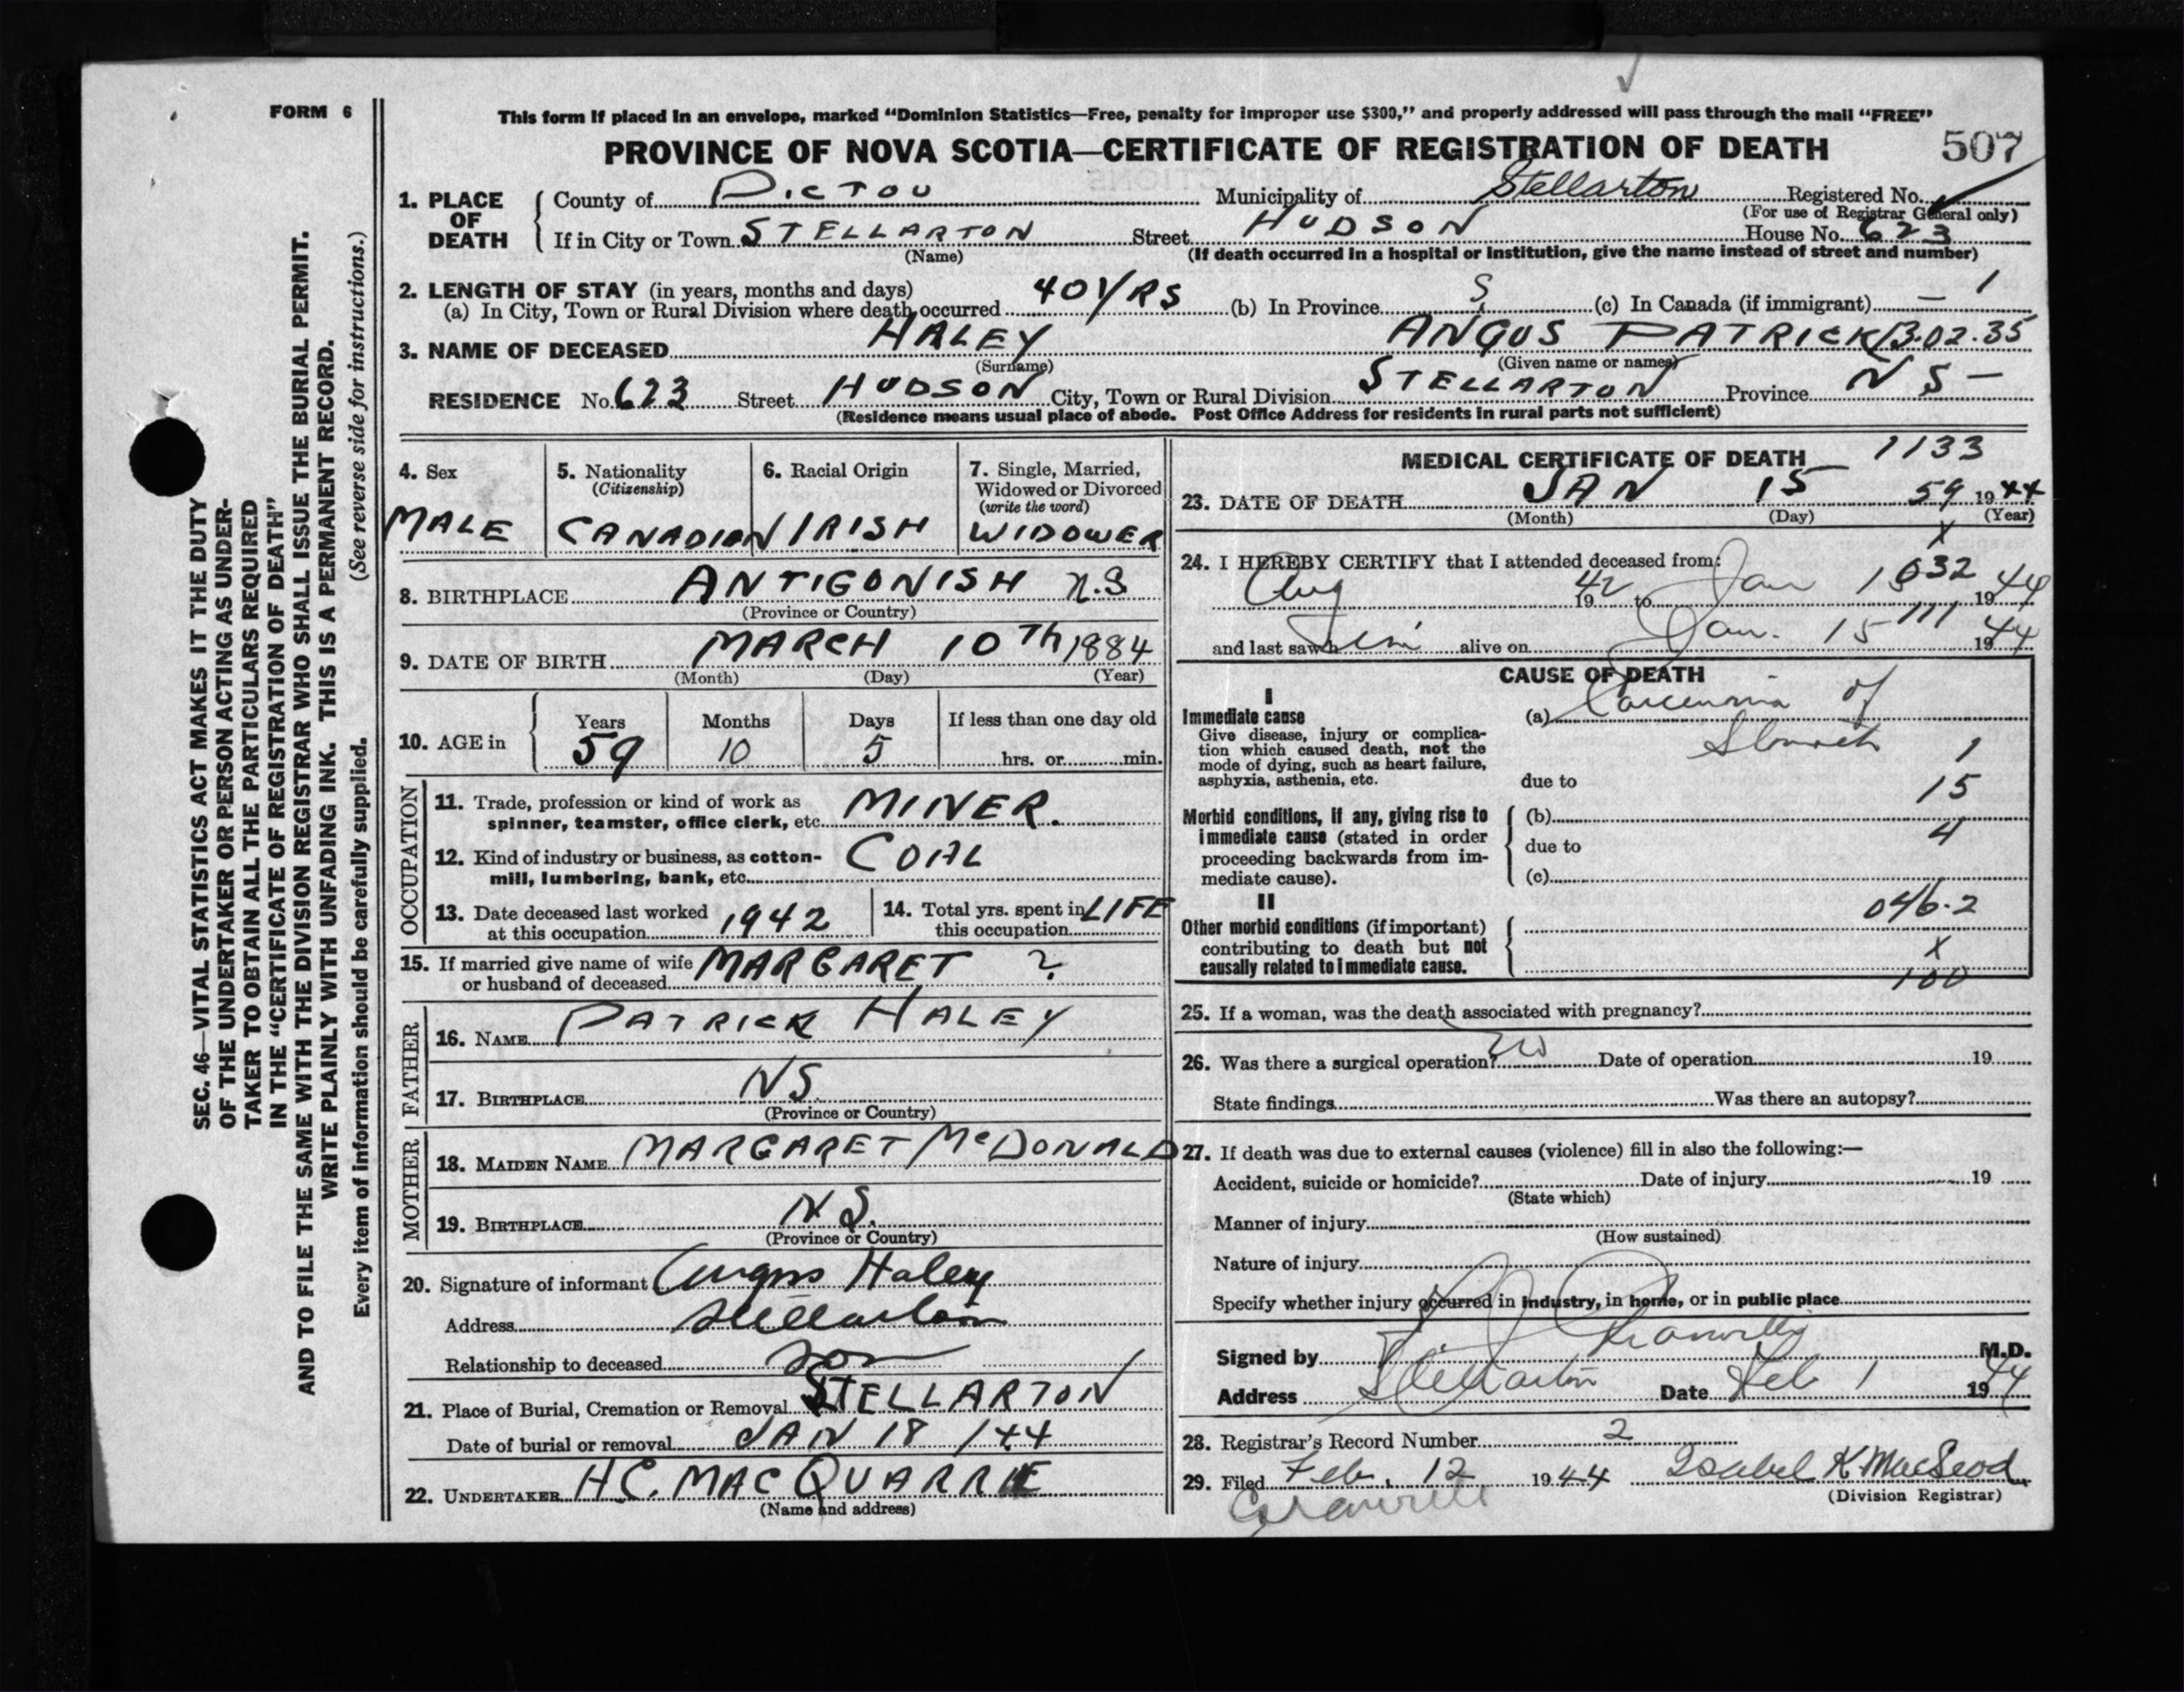 FORM 6
This form if placed in an envelope, marked "Dominion Statistics—Free, penalty for improper use $300," and properly addressed will pass through the mail "FREE"
PROVINCE OF NOVA SCOTIA—CERTIFICATE OF REGISTRATION OF DEATH 507
1. PLACE OF DEATH
County of PICTOU Municipality of Stellarton Registered No.
(For use of Registrar General only)
If in City or Town STELLARTON Street HUDSON House No. 623
(Name) (If death occurred in a hospital or institution, give the name instead of street and number)
2. LENGTH OF STAY (in years, months and days)
(a) In City, Town or Rural Division where death occurred 40 YRS (b) In Province S (c) In Canada (if immigrant) — 1
3. NAME OF DECEASED HALEY ANGUS PATRICK 13.02.35
(Surname) (Given name or names)
RESIDENCE No. 623 Street HUDSON City, Town or Rural Division STELLARTON Province N S —
(Residence means usual place of abode. Post Office Address for residents in rural parts not sufficient)
4. Sex
MALE
5. Nationality
(Citizenship)
CANADIAN
6. Racial Origin
IRISH
7. Single, Married,
Widowed or Divorced
(write the word)
WIDOWER
8. BIRTHPLACE ANTIGONISH N.S
(Province or Country)
9. DATE OF BIRTH MARCH 10TH 1884
(Month) (Day) (Year)
10. AGE in
Years Months Days If less than one day old
59 10 5 hrs. or min.
OCCUPATION
11. Trade, profession or kind of work as
spinner, teamster, office clerk, etc. MINER.
12. Kind of industry or business, as cotton-
mill, lumbering, bank, etc. COAL
13. Date deceased last worked
at this occupation 1942
14. Total yrs. spent in
this occupation LIFE
15. If married give name of wife
or husband of deceased MARGARET ?
FATHER
16. NAME PATRICK HALEY
17. BIRTHPLACE NS.
(Province or Country)
MOTHER
18. MAIDEN NAME MARGARET McDONALD
19. BIRTHPLACE N.S.
(Province or Country)
20. Signature of informant Angus Haley
Address Stellarton
Relationship to deceased Son
21. Place of Burial, Cremation or Removal STELLARTON
Date of burial or removal JAN 18 / 44
22. UNDERTAKER H.C. MACQUARRIE
(Name and address)
MEDICAL CERTIFICATE OF DEATH 1133
23. DATE OF DEATH JAN 15 59 1944
(Month) (Day) (Year)
X
24. I HEREBY CERTIFY that I attended deceased from:
Aug 1942 to Jan 15 032 1944
and last saw him alive on Jan. 15 111 1944
CAUSE OF DEATH
I
Immediate cause
Give disease, injury or complica-
tion which caused death, not the
mode of dying, such as heart failure,
asphyxia, asthenia, etc.
(a) Carcinoma of
Stomach 1
due to
15
Morbid conditions, if any, giving rise to
immediate cause (stated in order
proceeding backwards from im-
mediate cause).
(b)
due to 4
(c)
II
Other morbid conditions (if important)
contributing to death but not
causally related to immediate cause.
046.2
X
100
25. If a woman, was the death associated with pregnancy?
26. Was there a surgical operation? No Date of operation 19
State findings Was there an autopsy?
27. If death was due to external causes (violence) fill in also the following:—
Accident, suicide or homicide? Date of injury 19
(State which)
Manner of injury
(How sustained)
Nature of injury
Specify whether injury occurred in industry, in home, or in public place
Signed by M.D.
Address Stellarton Date Feb 1 1944
28. Registrar's Record Number 2
29. Filed Feb. 12 1944 Isabel K MacLeod
(Division Registrar)
SEC. 46—VITAL STATISTICS ACT MAKES IT THE DUTY
OF THE UNDERTAKER OR PERSON ACTING AS UNDER-
TAKER TO OBTAIN ALL THE PARTICULARS REQUIRED
IN THE "CERTIFICATE OF REGISTRATION OF DEATH"
AND TO FILE THE SAME WITH THE DIVISION REGISTRAR WHO SHALL ISSUE THE BURIAL PERMIT.
WRITE PLAINLY WITH UNFADING INK. THIS IS A PERMANENT RECORD.
Every item of information should be carefully supplied. (See reverse side for instructions.)